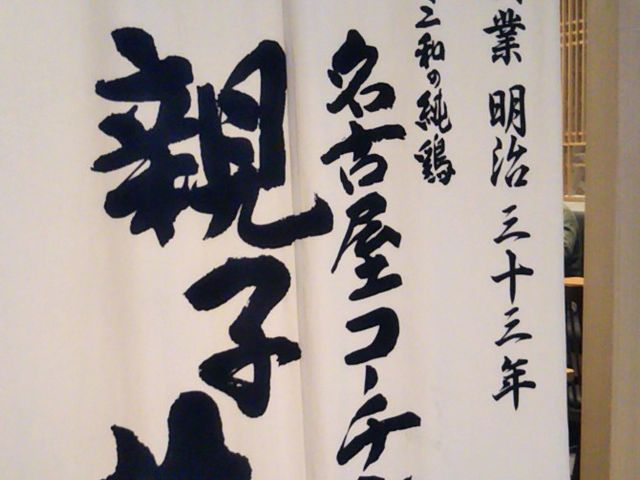 業 明治三十三年
三和の純鶏
名古屋コーチ
親子